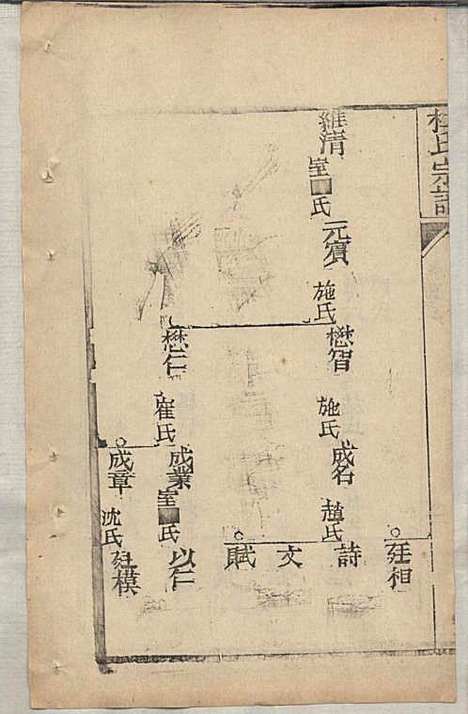 杜氏宗譜
廷相
維清
室■氏
元賓
施氏
懋智
施氏
成名
趙氏
詩
文
賦
懋仁
崔氏
成業
室■氏
以仁
成章
沈氏
廷模